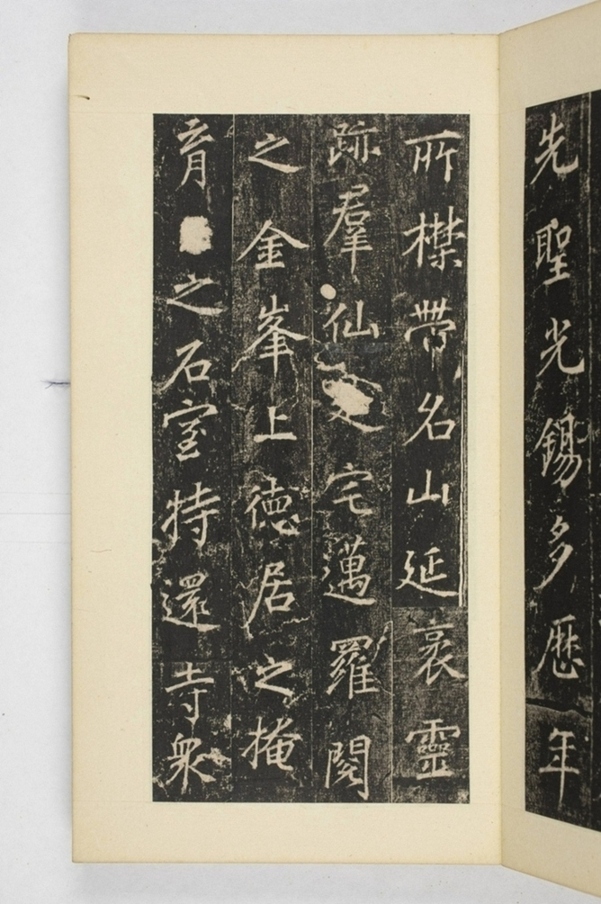 先聖光錫多歷年
所襟帶名山延袤靈
跡羣仙宅邁羅閱
之金峯上德居之掩
育之石室特還寺衆